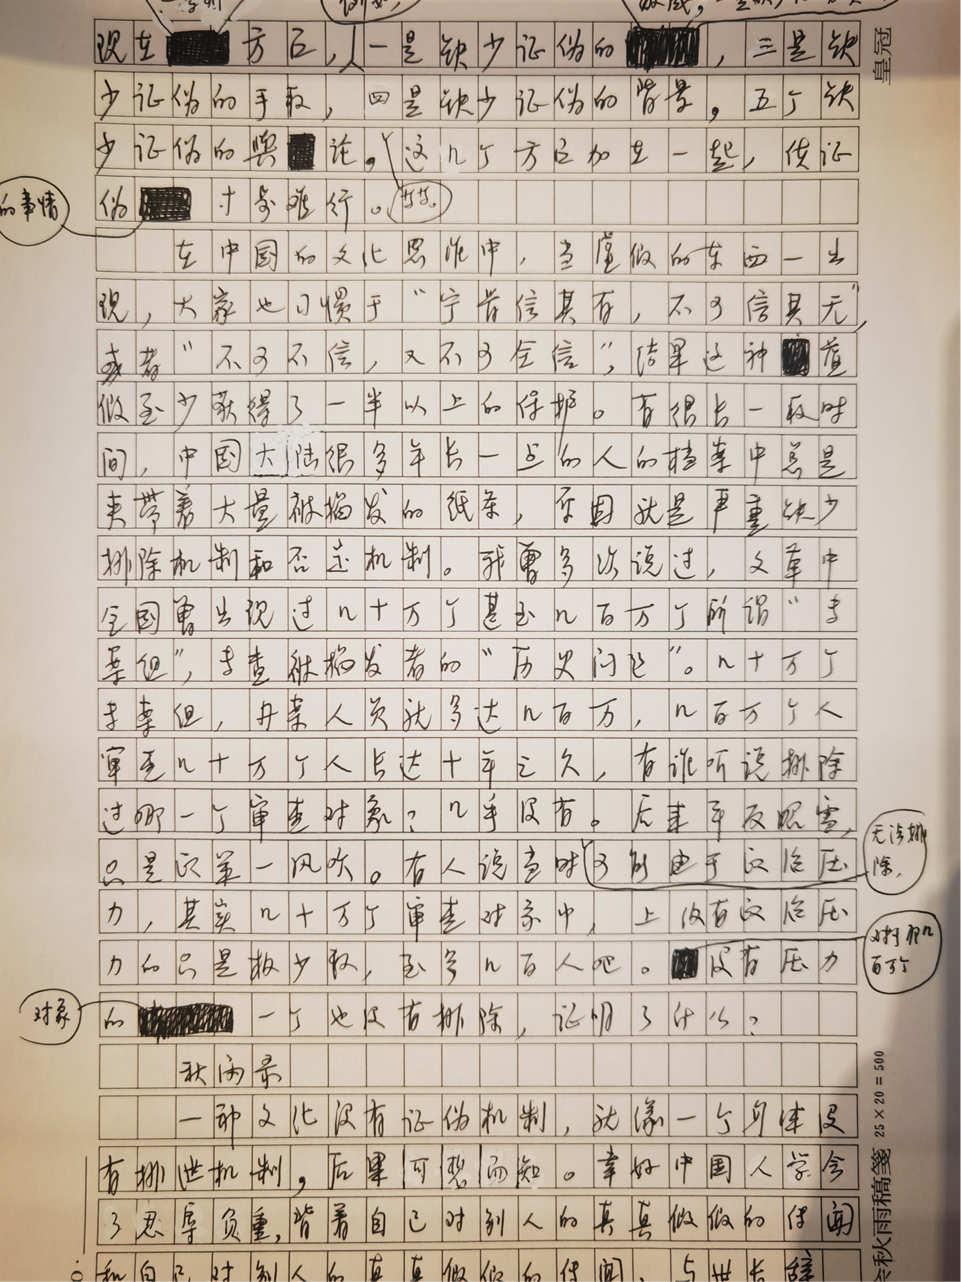 现在方已,一是缺少证伪的,三是缺
少证伪的手段,四是缺少证伪的背景,五个缺
少证伪的舆论。这几个方已加在一起,使证
的事情
伪寸步难行。
在中国的文化思维中,当虚假的东西一出
现,大家也习惯于“宁肯信其有,不可信其无”,
或者“不可不信,又不可全信”,结果这种虚
假至少获得了一半以上的保护。有很长一段时
间,中国大陆很多年长一点的人的档案中总是
夹带着大量被揭发的纸条,原因就是严重缺少
排除机制和否定机制。我曾多次说过,文革中
全国曾出现过几十万个甚至几百万个所谓“专
案组”,专查被揭发者的“历史问题”。几十万个
专案组,办案人员就多达几百万,几百万个人
审查几十万个人长达十年之久,有谁听说排除
过哪一个审查对象?几乎没有。后来平反昭雪,
只是政策一风吹。有人说当时可能由于政治压
无法排
除,
力,其实几十万个审查对象中,上没有政治压
力的只是极少数,至多几百人吧。没有压力
对于那几
百万个
对象
的一个也没有排除,证明了什么?
秋雨录
一种文化没有证伪机制,就像一个身体没
有排泄机制,后果可想而知。幸好中国人学会
了忍辱负重,背着自己对别人的真真假假的传闻
和自己对别人的真真假假的传闻,与世长辞
皇冠
秋雨稿笺 25×20=500